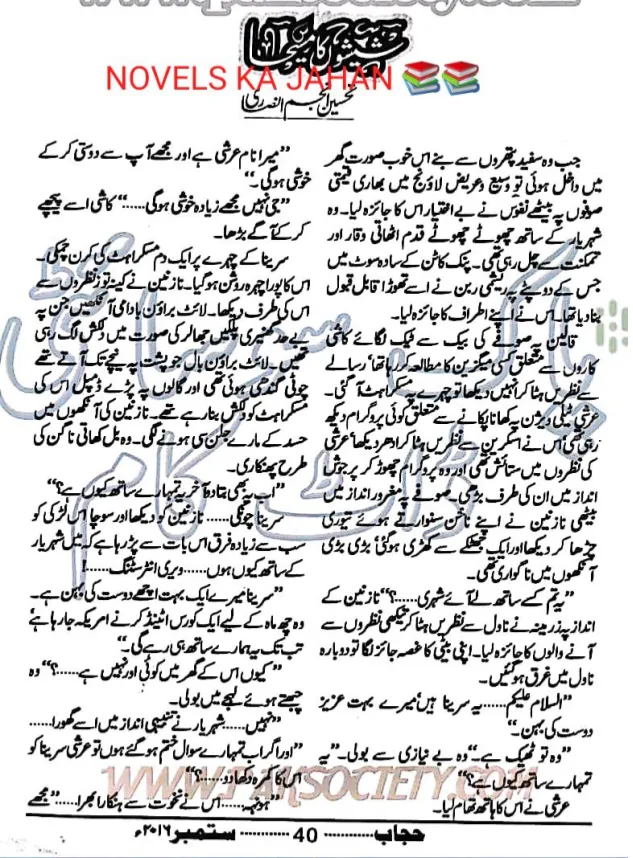 شیشوں کا مسیحا
NOVELS KA JAHAN
تحسین انجم انصاری
جب وہ سفید پتھروں سے بنے اس خوب صورت گھر
میں داخل ہوئی تو وسیع و عریض لاؤنج میں بھاری قیمتی
صوفوں پہ بیٹھے نفوس نے بے اختیار اس کا جائزہ لیا۔ وہ
شہریار کے ساتھ چھوٹے چھوٹے قدم اٹھاتی وقار اور
تمکنت سے چل رہی تھی۔ پنک کاٹن کے سادہ سوٹ میں
جس کے دوپٹے پر ریشمی ربن نے اسے تھوڑا قابل قبول
بنادیا تھا۔ اس نے اپنے اطراف کا جائزہ لیا۔
قالین پہ صوفے کی بیک سے ٹیک لگائے کاشی
کاروں سے متعلق کسی میگزین کا مطالعہ کررہا تھا، رسالے
سے نظریں ہٹا کر انہیں دیکھا تو چہرے پہ مسکراہٹ آگئی۔
عرشی ٹیلی ویژن پہ کھانا پکانے سے متعلق کوئی پروگرام دیکھ
رہی تھی اس نے اسکرین سے نظریں ہٹا کر ادھر دیکھا عرشی
کی نظروں میں ستائش تھی اور وہ پروگرام چھوڑ کر پرجوش
انداز میں ان کی طرف بڑھی۔ صوفے پہ مغرور انداز میں
بیٹھی نازنین نے اپنے ناخن سنوارتے ہوئے تیوری
چڑھا کر دیکھا اور ایک جھٹکے سے کھڑی ہوگئی بڑی بڑی
آنکھوں میں ناگواری تھی۔
”یہ تم کسے ساتھ لے آئے شہری......؟“ نازنین کے
انداز پہ زرمینہ نے ناول سے نظریں ہٹا کر تیکھی نظروں سے
آنے والوں کا جائزہ لیا۔ اپنی بیٹی کا غصہ جائز لگا تو دوبارہ
ناول میں غرق ہوگئیں۔
”السلام علیکم...... یہ سرینا ہیں میرے بہت عزیز
دوست کی بہن۔“
”وہ تو ٹھیک ہے۔“ وہ بے نیازی سے بولی۔ ”یہ
تمہارے ساتھ کیوں ہے؟“
عرشی نے اس کا ہاتھ تھام لیا۔
”میرا نام عرشی ہے اور مجھے آپ سے دوستی کرکے
خوشی ہوگی۔“
”جی نہیں مجھے زیادہ خوشی ہوگی......“ کاشی اسے پیچھے
کرکے آگے بڑھا۔
سرینا کے چہرے پر ایک دم مسکراہٹ کی کرن چمکی۔
اس کا پورا چہرہ روشن ہوگیا۔ نازنین نے کینہ توز نظروں سے
اس کی طرف دیکھا۔ لائٹ براؤن بادامی آنکھیں جن پہ
بے حد گھنیری پلکیں جھالر کی صورت میں دلکش لگ رہی
تھیں۔ لائٹ براؤن بال جو پشت پہ نیچے تک آتے تھے
چوٹی گندھی ہوئی تھی اور گالوں پہ پڑے ڈمپل اس کی
مسکراہٹ کو دلکش بنارہے تھے۔ نازنین کی آنکھوں میں
حسد کے مارے جلن سی ہونے لگی۔ وہ بل کھاتی ناگن کی
طرح پھنکاری۔
”اب یہ بھی بتادو آخر یہ تمہارے ساتھ کیوں ہے؟“
سرینا چونکی...... نازنین کو دیکھا اور سوچا اس لڑکی کو
سب سے زیادہ فرق اس بات سے پڑرہا ہے کہ میں شہریار
کے ساتھ کیوں ہوں...... ویری انٹرسٹنگ......!
”سرینا میرے ایک بہت اچھے دوست کی بہن ہے۔
وہ چھ ماہ کے لیے ایک کورس اٹینڈ کرنے امریکہ جارہا ہے
تب تک یہ ہمارے ساتھ ہی رہے گی۔“
”کیوں اس کے گھر میں کوئی اور نہیں ہے......؟“ وہ
چبھتے ہوئے لہجے میں بولی۔
”نہیں...... شہریار نے تنبیہی انداز میں اسے گھورا......
”اور اگر اب تمہارے سوال ختم ہوگئے ہوں تو عرشی سرینا کو
اس کا کمرہ دکھا دو......؟“
”ہونہہ...... اس نے نخوت سے ہنکارا بھرا......“ مجھے
پاک سوسائٹی
ڈاٹ کام
WWW.PAKSOCIETY.COM
حجاب ........... 40 ........... ستمبر ۲۰۱۶ء